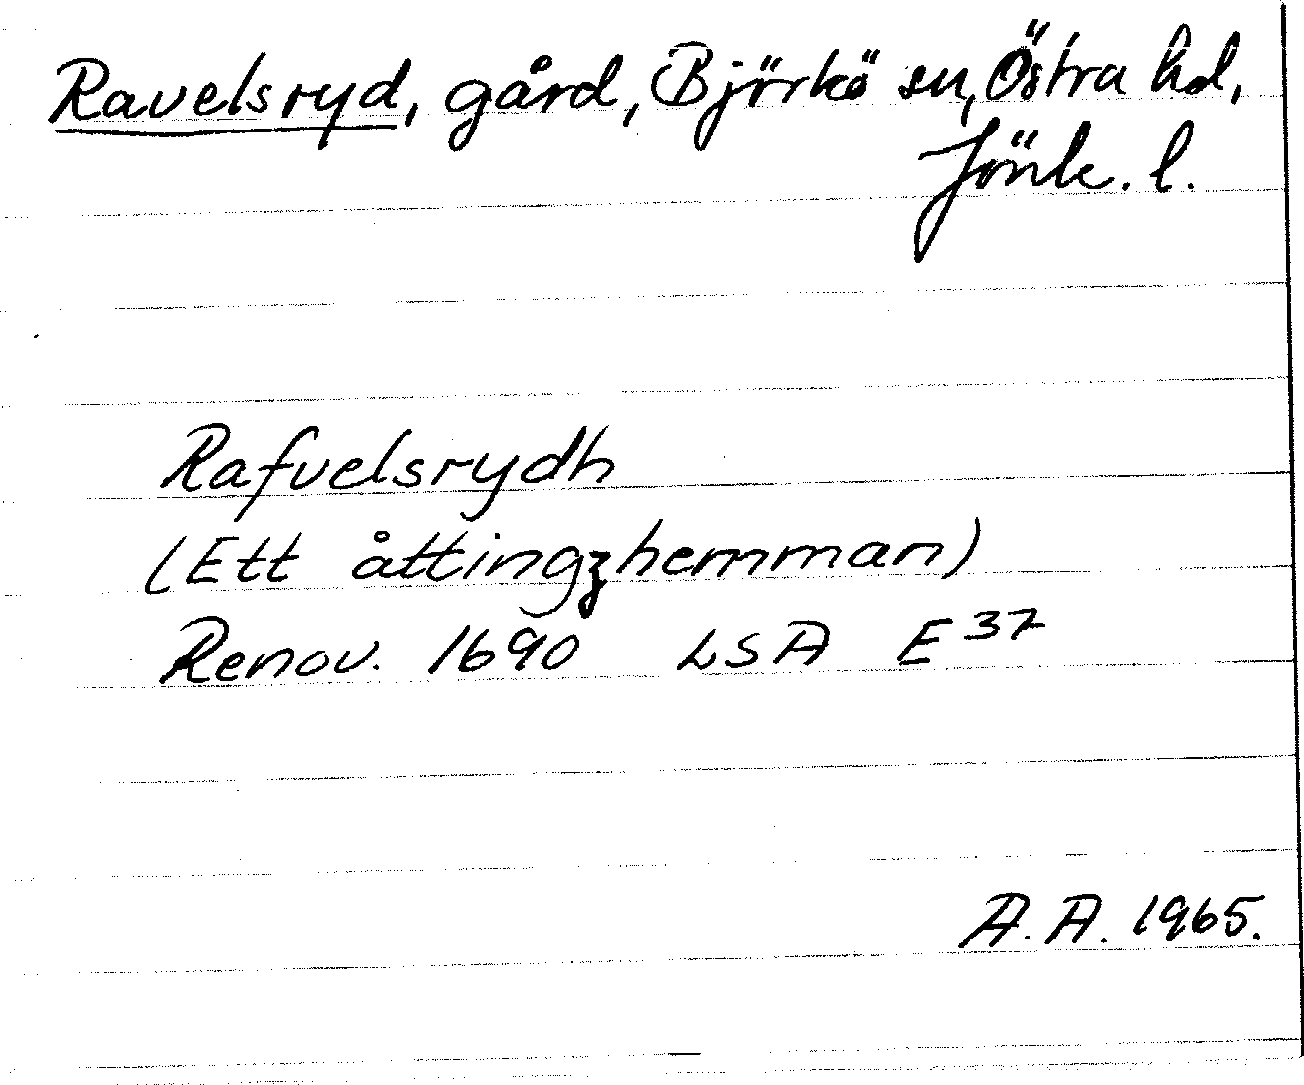 Ravelsryd, gård, Björkö sn, Östra hd,
Jönk. l.
Rafvelsrydh
(Ett åttingzhemman)
Renov. 1690 LSA E 37
A.A. 1965.